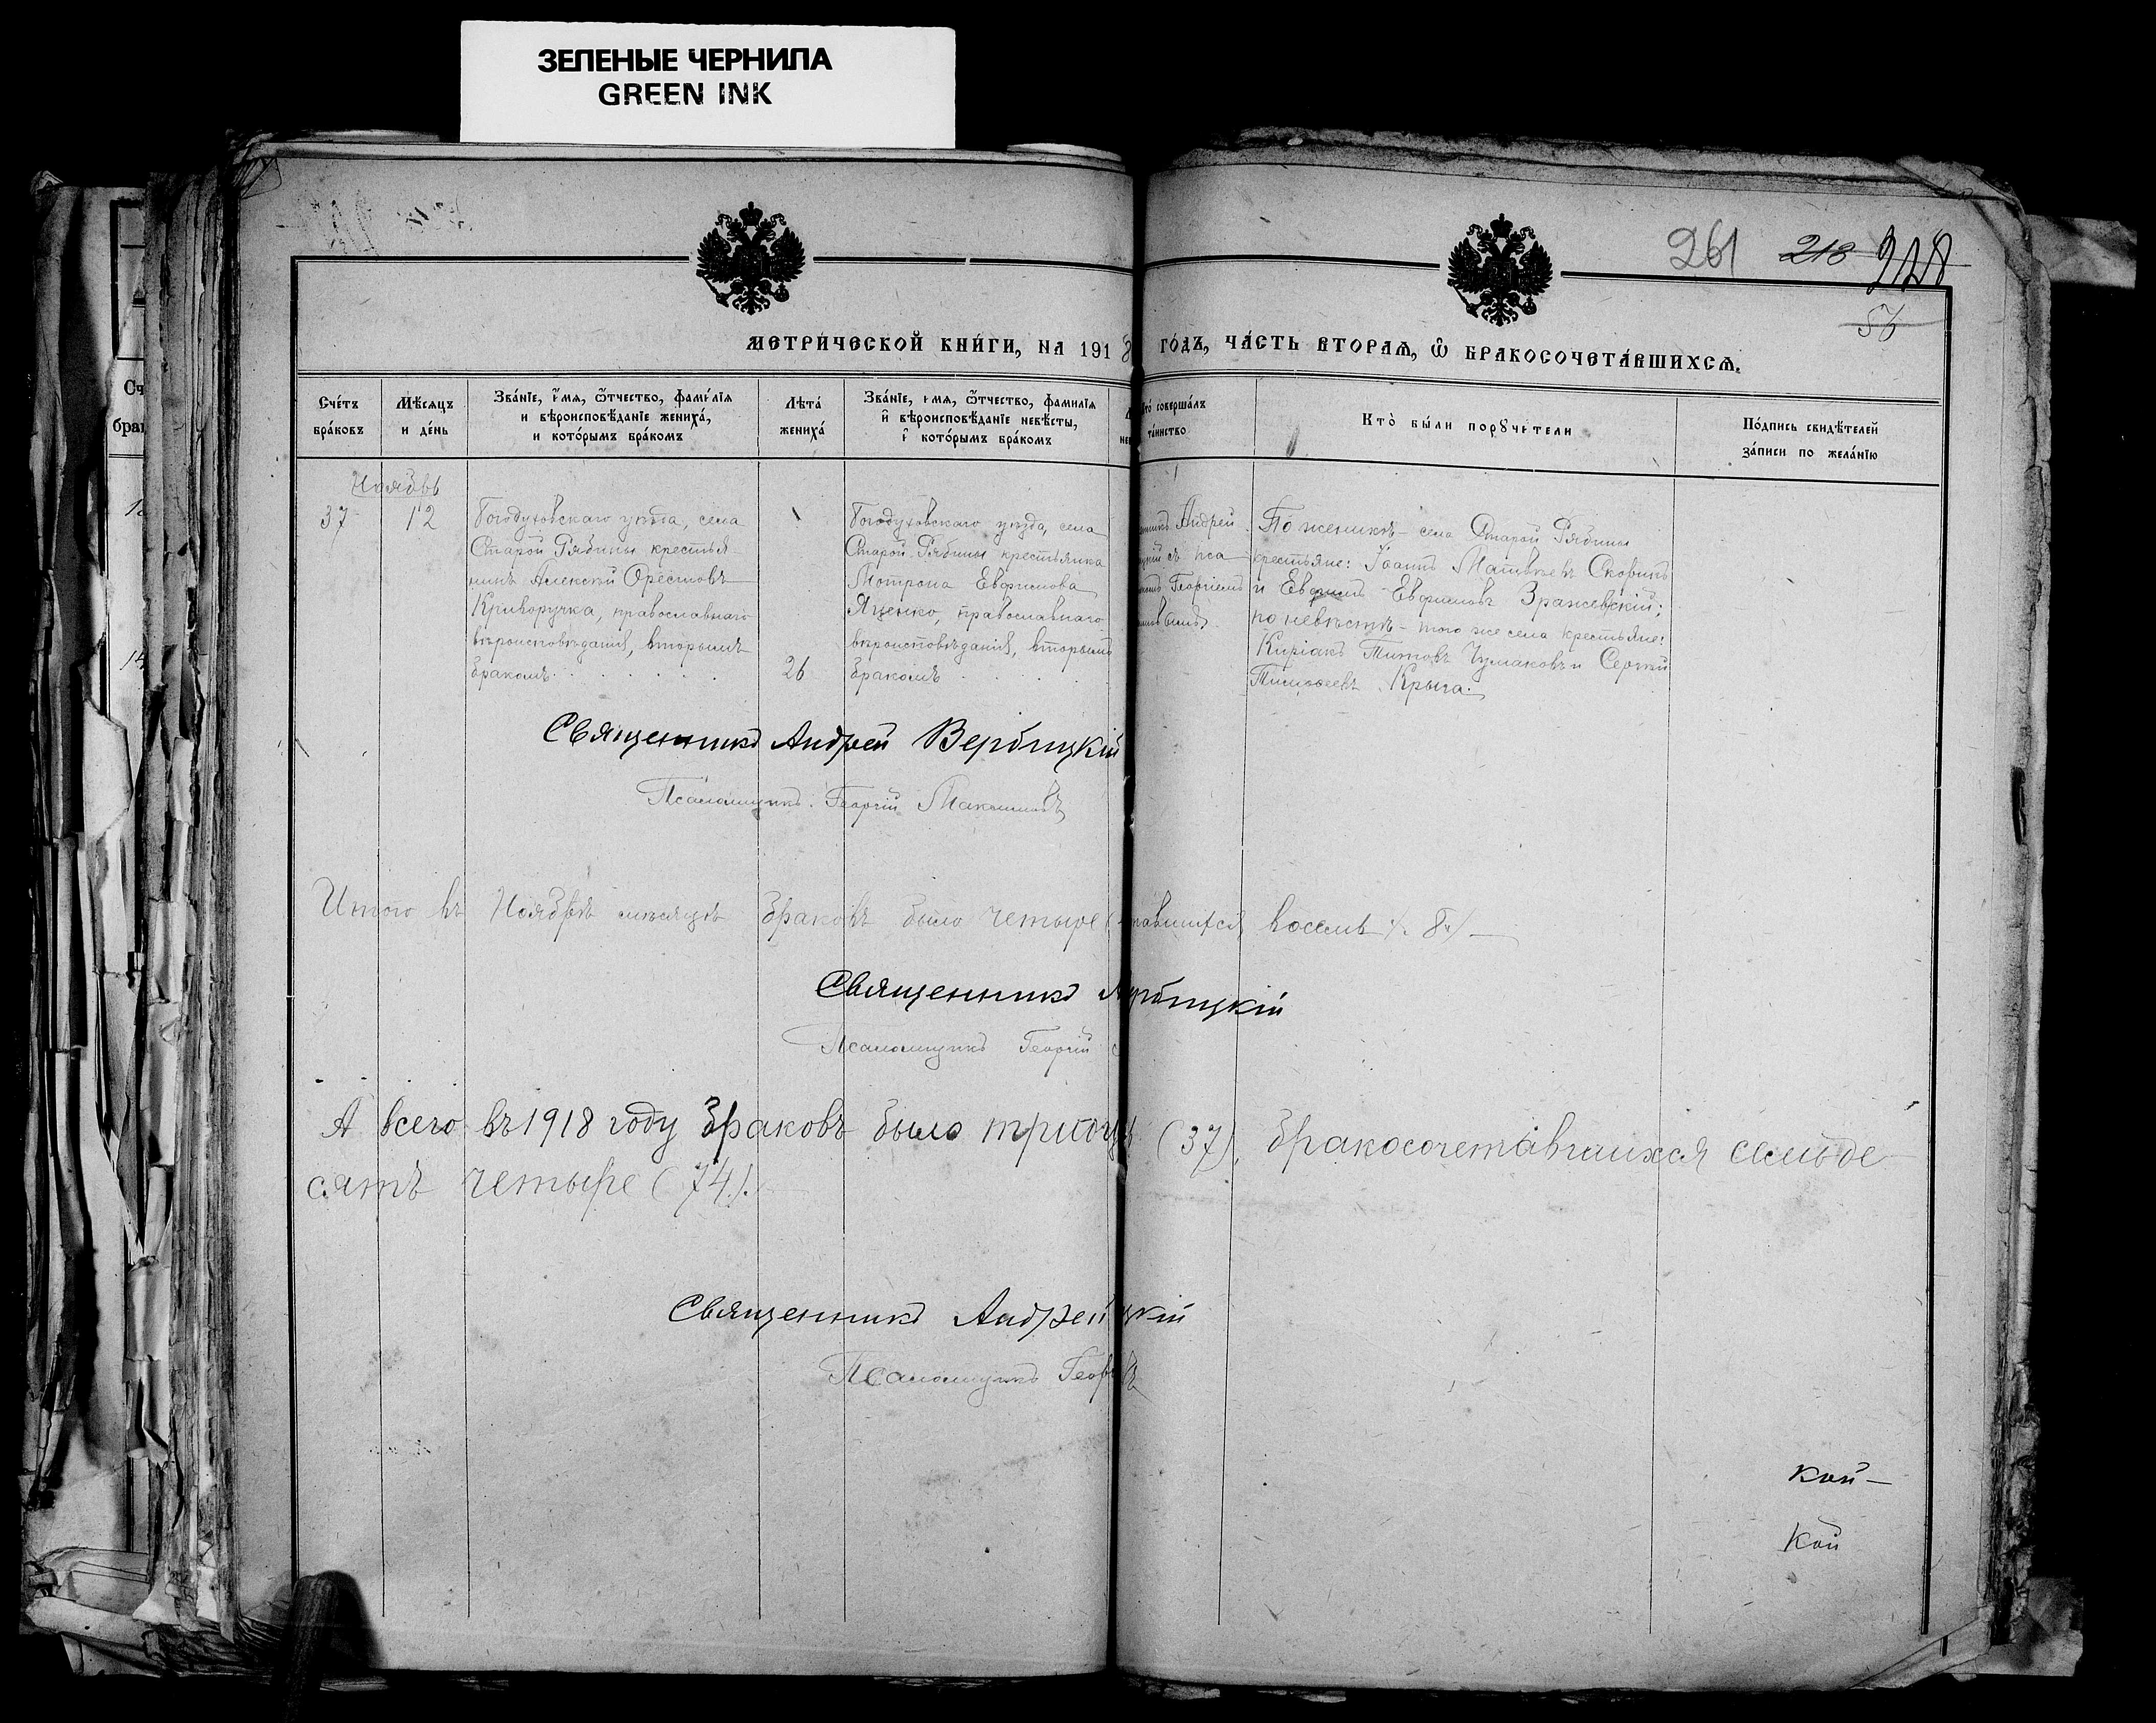 ЗЕЛЕНЫЕ ЧЕРНИЛА
GREEN INK
261 218 228
53
МЕТРИ́ЧЕСКОЙ КНИ́ГИ, НА 1918 ГО́ДЪ, ЧА́СТЬ ВТОРАѦ, Ѡ҆ БРАКОСОЧЕТА́ВШИХСѦ.
Сче́тъ
бра́ковъ
Мѣ́сяцъ
и де́нь
Зва́нїе, и҆́мѧ, ѻ҆́тчество, фами́лїѧ
и вѣроисповѣ́данїе жениха́,
и кото́рымъ бра́комъ
Лѣта́
жениха́
Зва́нїе, и҆́мѧ, ѻ҆́тчество, фами́лїѧ
и҆ вѣроисповѣ́данїе невѣ́сты,
и҆ кото́рымъ бра́комъ
соверша́лъ
та́инство
Кто̀ бы́ли порꙋчи́тели
По́дпись свидѣ́телей
за́писи по жела́нїю
Ноябрь
37 12
Богодуховскаго уѣзда, села
Старой Рябины крестья-
нинъ Алексѣй Орестовъ
Криворучка, православнаго
вѣроисповѣданія, вторымъ
бракомъ
26
Богодуховскаго уѣзда, села
Старой Рябины крестьянка
Мотрона Евфимова
Яценко, православнаго
вѣроисповѣданія, вторымъ
бракомъ
Андрей
съ пса
Георгіемъ
По женихѣ – села Старой Рябины
крестьяне: Іоаннъ Матвѣевъ Скорикъ
и Евфимъ Евфимовъ Зражевскій;
по невѣстѣ – того же села крестьяне:
Киріакъ Титовъ Чумаковъ и Сергѣй
Тимофеевъ Крыга.
Священникъ Андрей Вербицкій
Псаломщикъ Георгій Максимовъ
Итого въ Ноябрѣ мѣсяцѣ браковъ было четыре ( тавшихся восемь (8)
Священникъ рбицкій
Псаломщикъ Георгій
А всего въ 1918 году браковъ было тридц (37), бракосочетавшихся семьде-
сятъ четыре (74).
Священникъ Андрей цкій
Псаломщикъ Геор
кой –
кой